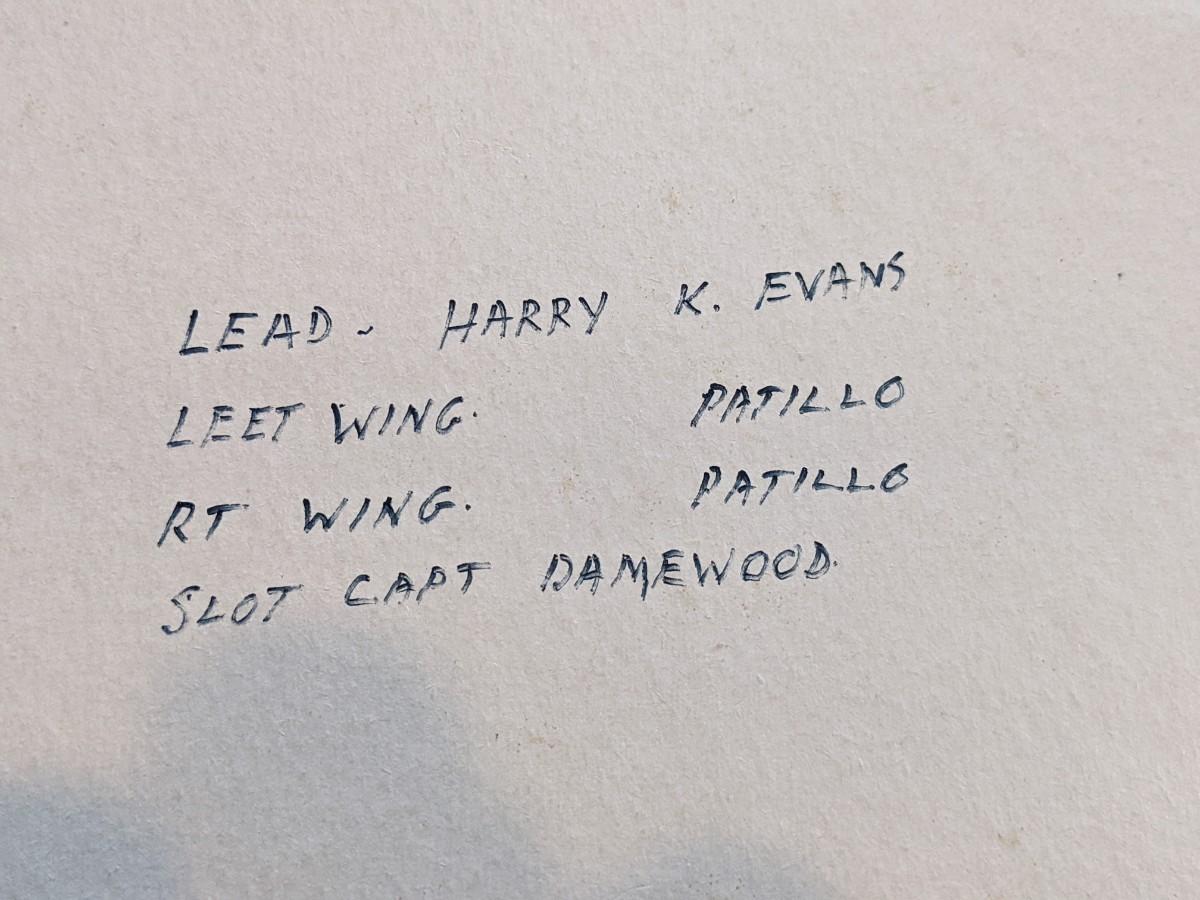 LEAD - HARRY K. EVANS
LEFT WING. PATILLO
RT WING. PATILLO
SLOT CAPT DAMEWOOD.